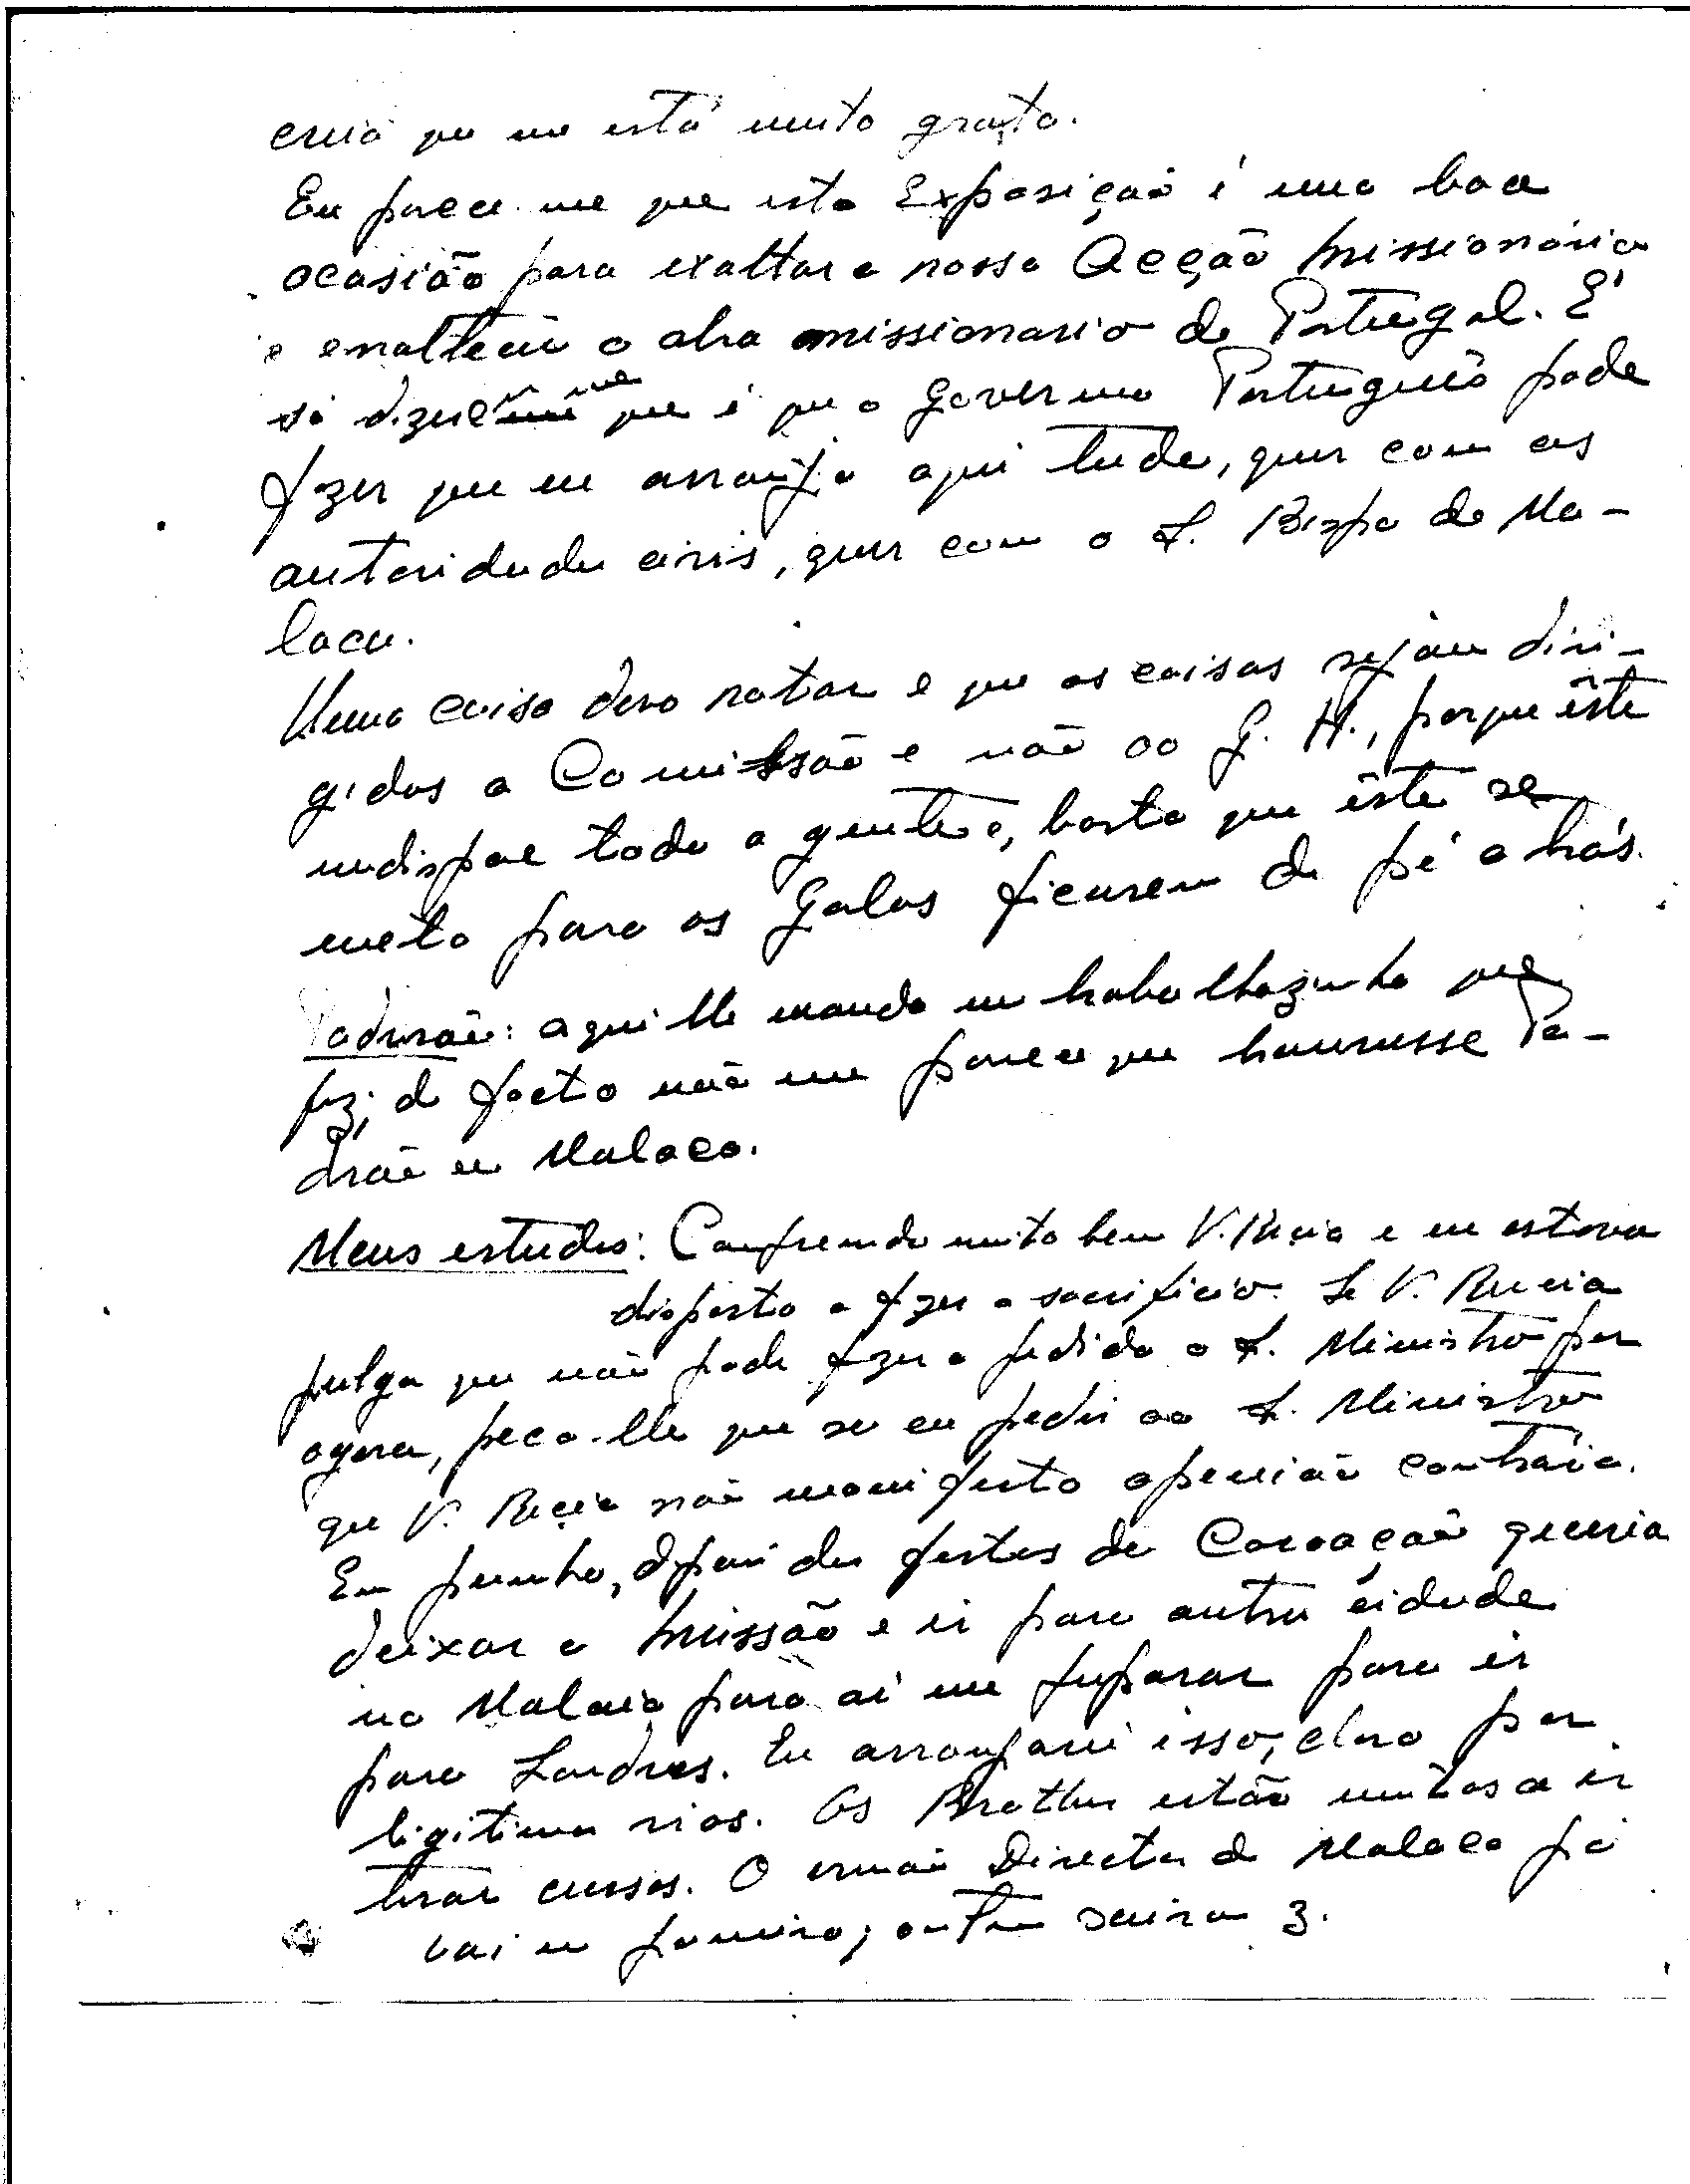 que me está muito grato.
Eu parece-me que esta Exposição é uma boa
ocasião para exaltar a nossa Acção Missionária
e enaltecer a obra missionario de Portugal. É
só dizerem me que é que o Governo Português pode
fazer que eu arranjo aqui tudo, quer com as
autoridades civis, quer com o S. Bispo de Ma-
laca.
Uma coisa devo notar e que as coisas sejam diri-
gidas a Comissão e não ao G. H., porque êste
indispoe toda a gente e, basta que êste se
meta para os Galos ficarem de pé atrás.
Padroão: aqui lhe mando um trabalhozinho que
fiz; de facto não me parece que houvesse Pa-
drão em Malaca.
Meus estudos: Compreendo muito bem V. Rvcia e eu estava
disposto a fazer o sacrificio. Se V. Rvcia
julga que não pode fazer o pedido a S. Ministro por
agora, peço-lhe que se eu pedir ao S. Ministro
que V. Rvcia não manifesta openião contrária.
Em junho, depois das festas da Coroação queria
deixar a Missão e ir para outra cidade
na Malaia para aí me preparar para ir
para Londres. Eu arranjarei isso, claro por
legitimas vias. Os Brothers estão muitos a ir
tirar cursos. O irmão Director de Malaca já
vai em Janeiro; outros 3.